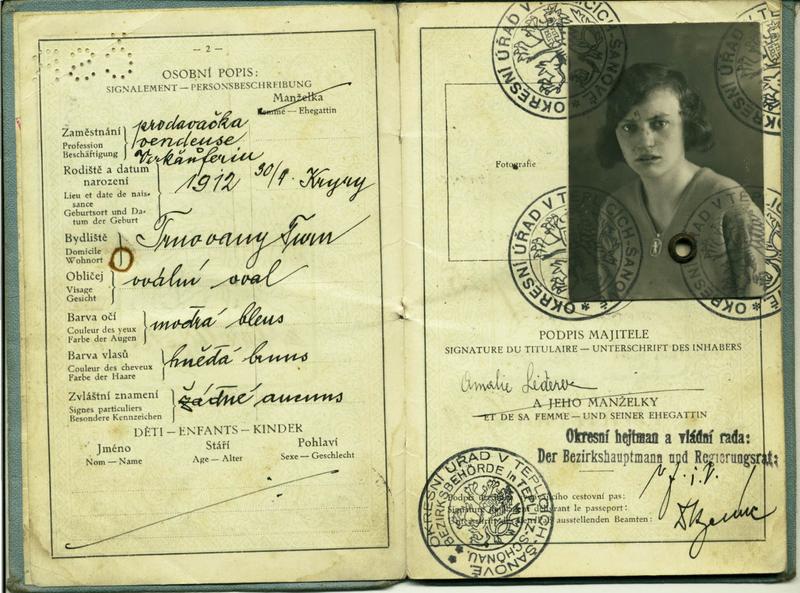 — 2 —
OSOBNÍ POPIS:
SIGNALEMENT — PERSONSBESCHREIBUNG
Manželka
Femme — Ehegattin
Zaměstnání
Profession
Beschäftigung
prodavačka
vendeuse
Verkäuferin
Rodiště a datum
narození
Lieu et date de nais-
sance
Geburtsort und Da-
tum der Geburt
1912 30/9. Kryry
Bydliště
Domicile
Wohnort
Trnovany Turn
Obličej
Visage
Gesicht
ovální oval
Barva očí
Couleur des yeux
Farbe der Augen
modrá bleus
Barva vlasů
Couleur des cheveux
Farbe der Haare
hnědá bruns
Zvláštní znamení
Signes particuliers
Besondere Kennzeichen
žádné aucuns
DĚTI — ENFANTS — KINDER
Jméno Stáří Pohlaví
Nom — Name Age — Alter Sexe — Geschlecht
Fotografie
OKRESNÍ ÚŘAD V TEPLICÍCH-ŠANOVĚ
PODPIS MAJITELE
SIGNATURE DU TITULAIRE — UNTERSCHRIFT DES INHABERS
Amalie
A JEHO MANŽELKY
ET DE SA FEMME — UND SEINER EHEGATTIN
Okresní hejtman a vládní rada:
Der Bezirkshauptmann und Regierungsrat:
cestovní pas:
le passeport:
ausstellenden Beamten:
OKRESNÍ ÚŘAD V TEPLICÍCH-ŠANOVĚ
BEZIRKSBEHÖRDE in TEPLITZ-SCHÖNAU.